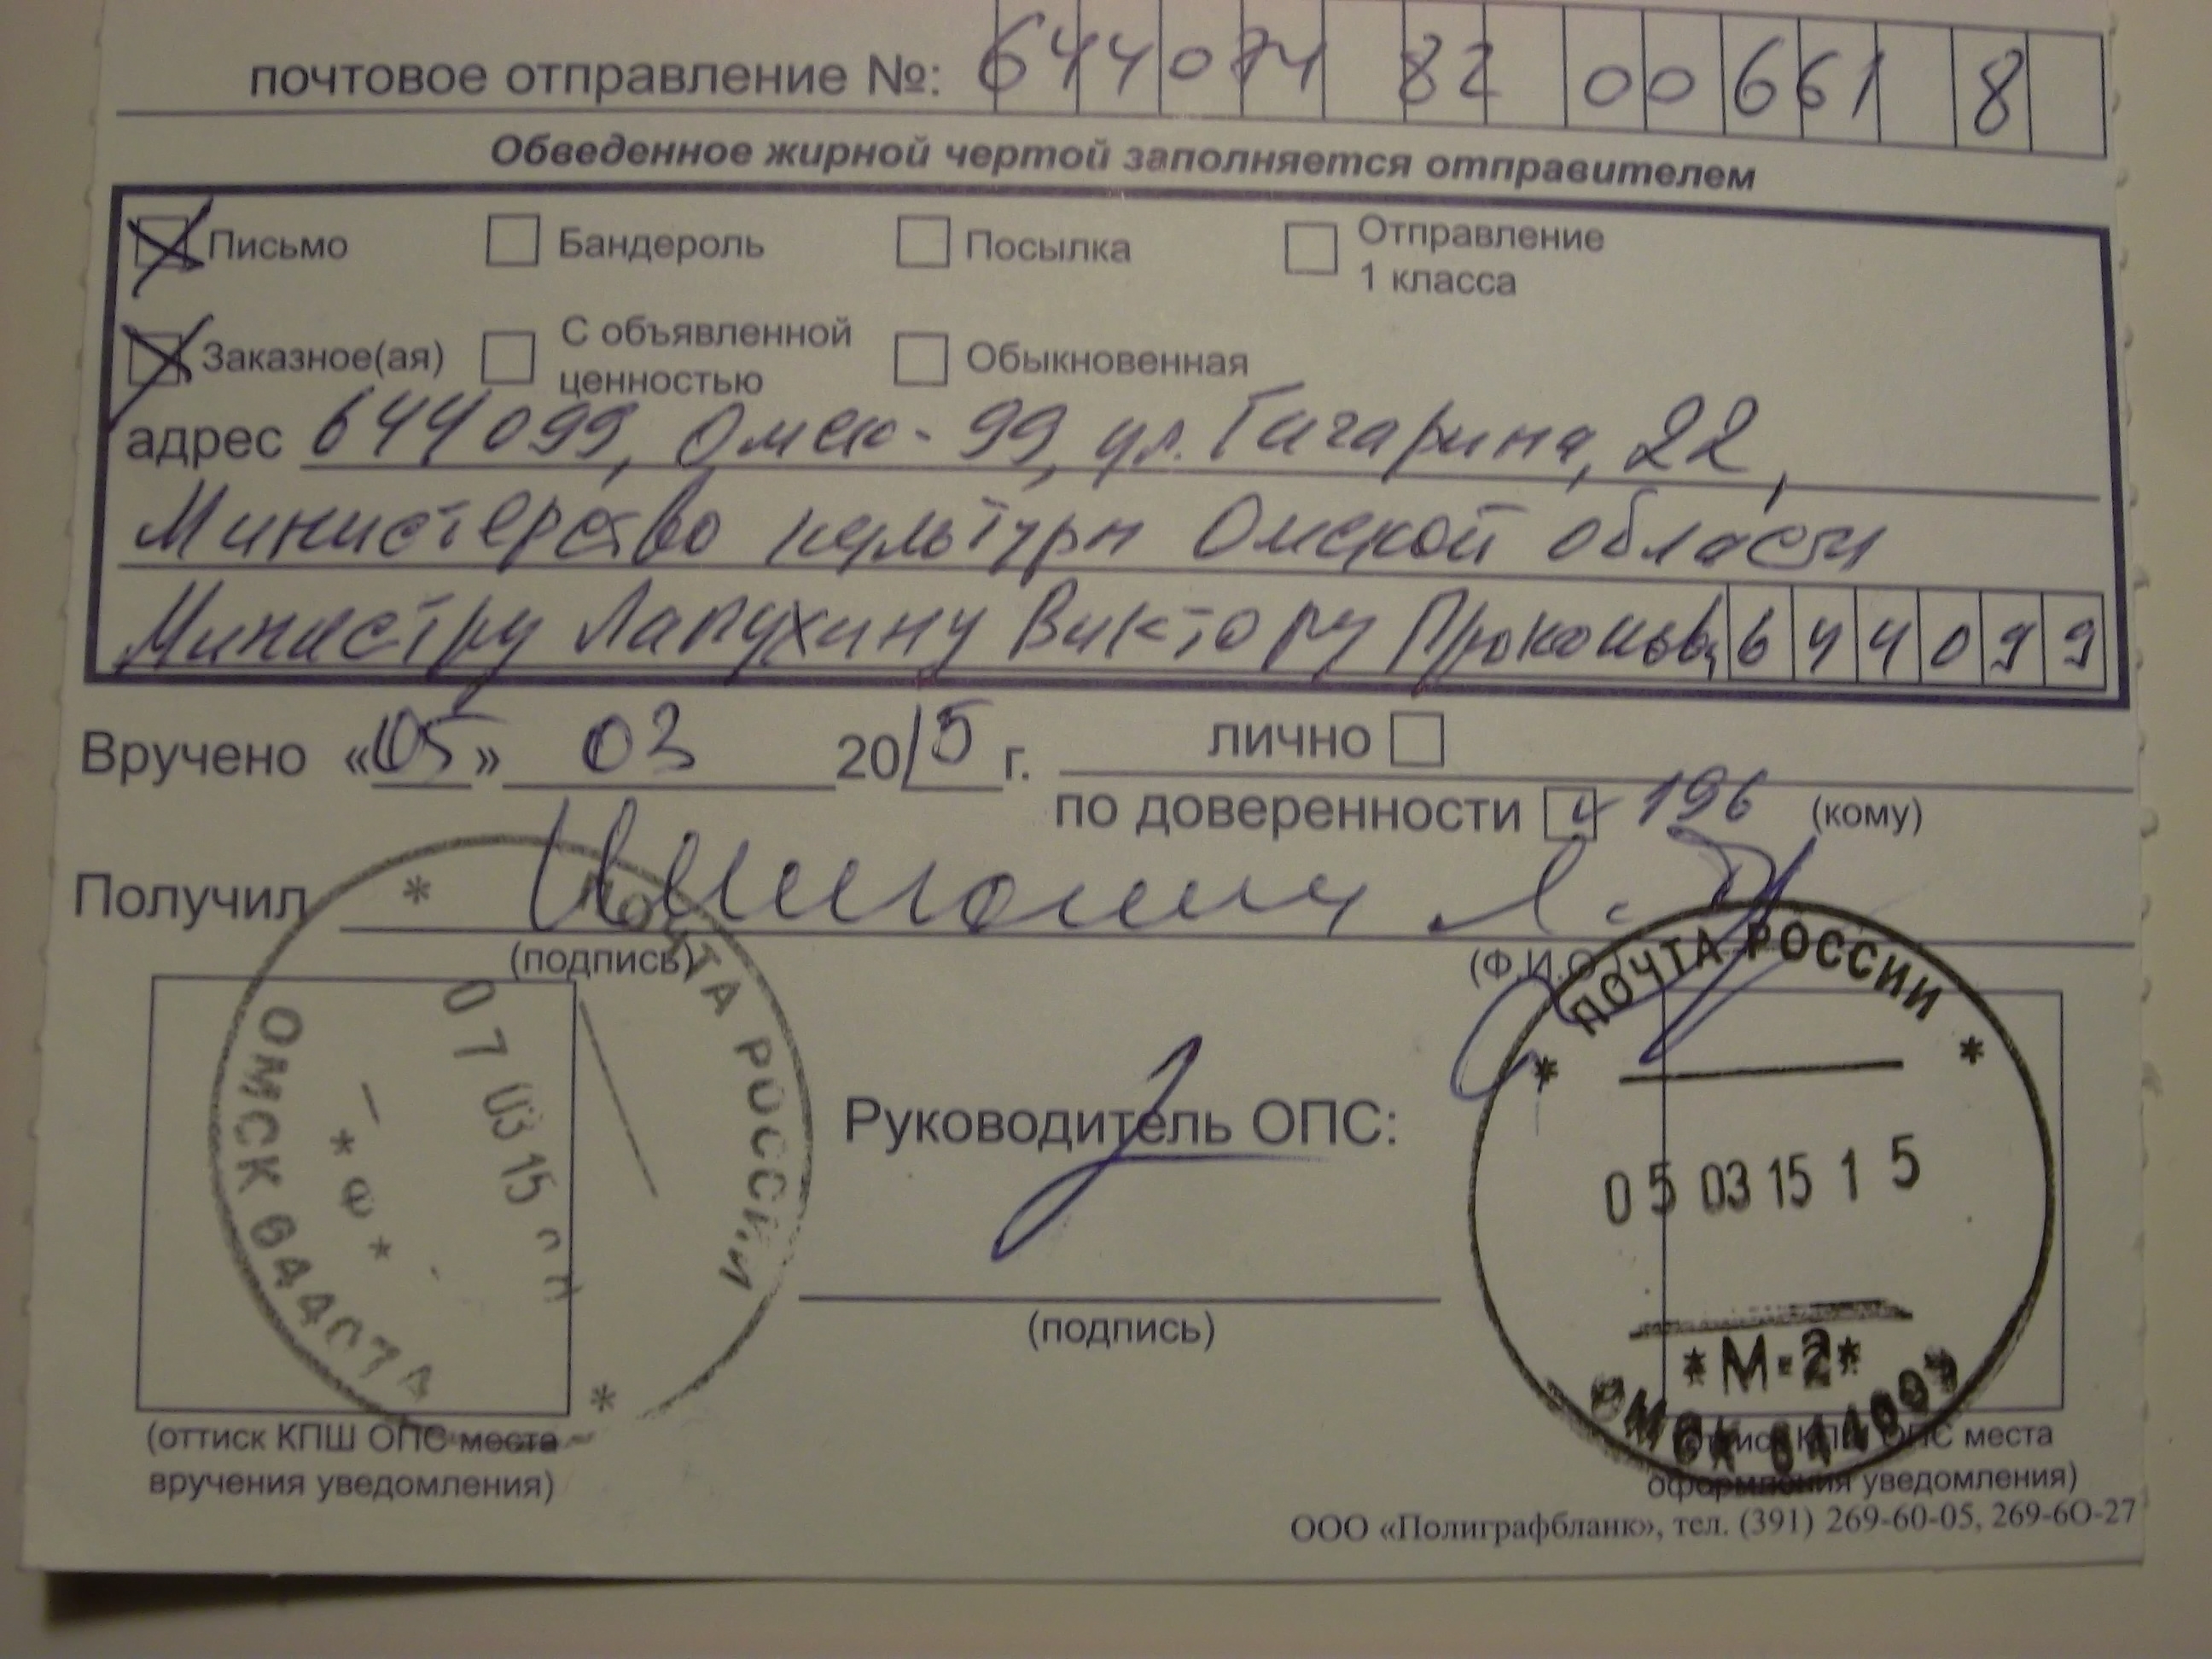 почтовое отправление №: 644074 82 00661 8
Обведенное жирной чертой заполняется отправителем
Письмо Бандероль Посылка Отправление
1 класса
Заказное(ая) С объявленной
ценностью Обыкновенная
адрес 644099, Омск-99, ул. Гагарина, 22,
Министерство культуры Омской области
Министру Лапухину Виктору Прокопьев. 644099
Вручено «05» 03 2015 г. лично
по доверенности 196 (кому)
Получил
(подпись) (Ф.И.О.)
ПОЧТА РОССИИ
07 03 15
ОМСК 644074
Руководитель ОПС:
(подпись)
ПОЧТА РОССИИ
05 03 15 1 5
*М-2*
ОМСК 644099
(оттиск КПШ ОПС места
вручения уведомления)
(оттиск КПШ ОПС места
оформления уведомления)
ООО «Полиграфбланк», тел. (391) 269-60-05, 269-6О-27